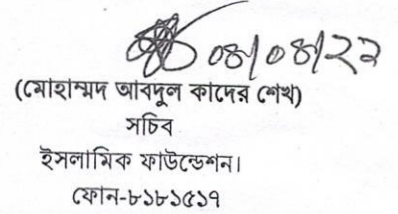 ০৪/০৪/২২
(মোহাম্মদ আবদুল কাদের শেখ)
সচিব
ইসলামিক ফাউন্ডেশন।
ফোন-৮১৮১৫১৭